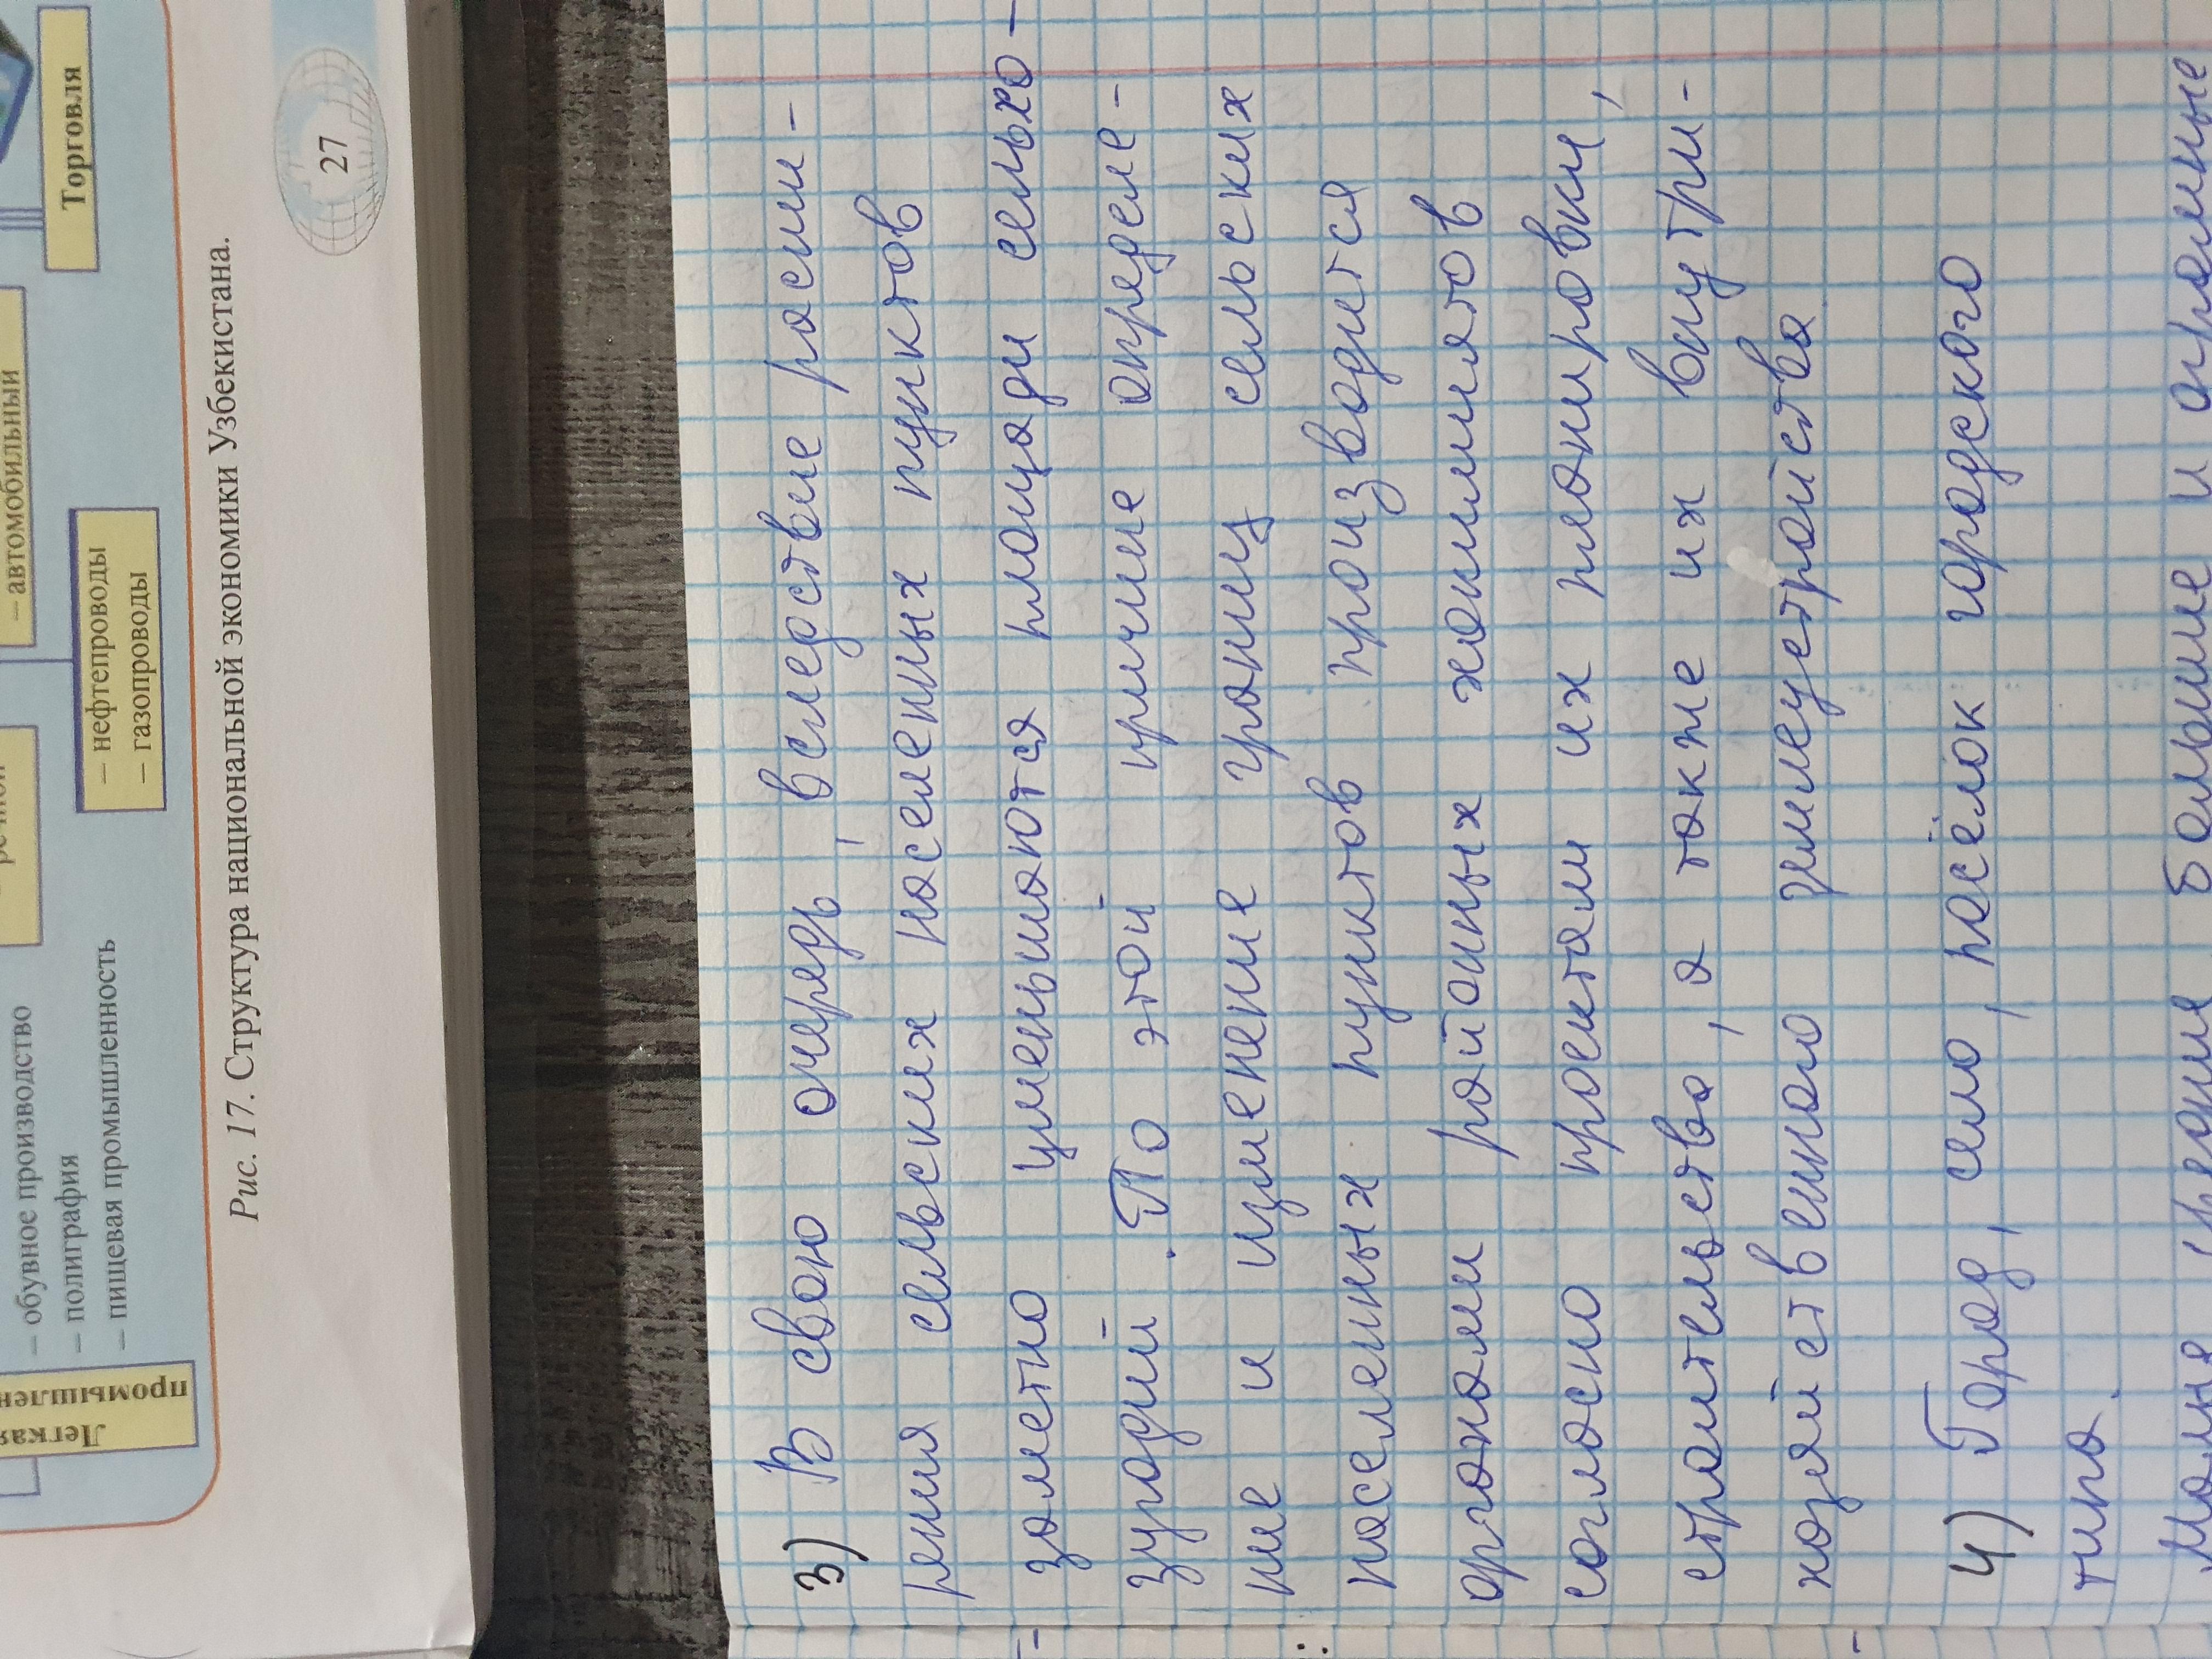 Торговля
– автомобильный
– нефтепроводы
– газопроводы
– обувное производство
– полиграфия
– пищевая промышленность
Рис. 17. Структура национальной экономики Узбекистана.
27
3) В свою очередь, вследствие расши-
рения сельских населенных пунктов
заметно уменьшаются площади сельхо-
зугодий. По этой причине определе-
ние и изменение границ сельских
населенных пунктов производится
органами районных хокимиятов
согласно проектам их планировки,
строительства, а также их внутри-
хозяйственного землеустройства
4) Город, село, посёлок городского
типа.
Малые, средние большие и огромные